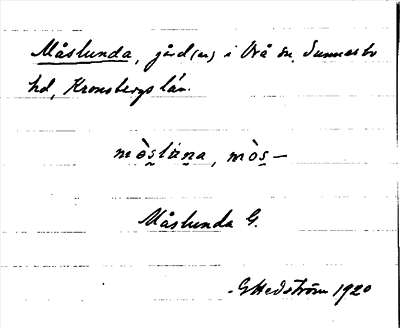 Måslunda, gård(ar) i Vrå sn, Sunnerbo
hd, Kronobergs län.
mòslùna, mòs–
Måslunda G.
G Hedström 1920